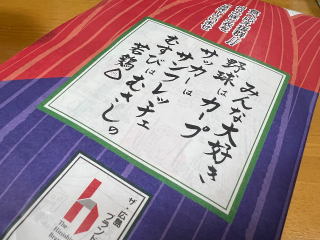 みんな大好き
野球はカープ
サッカーは
サンフレッチェ
むすびはむさしの
若鶏
ザ・広島
ブランド
The
Hiroshima